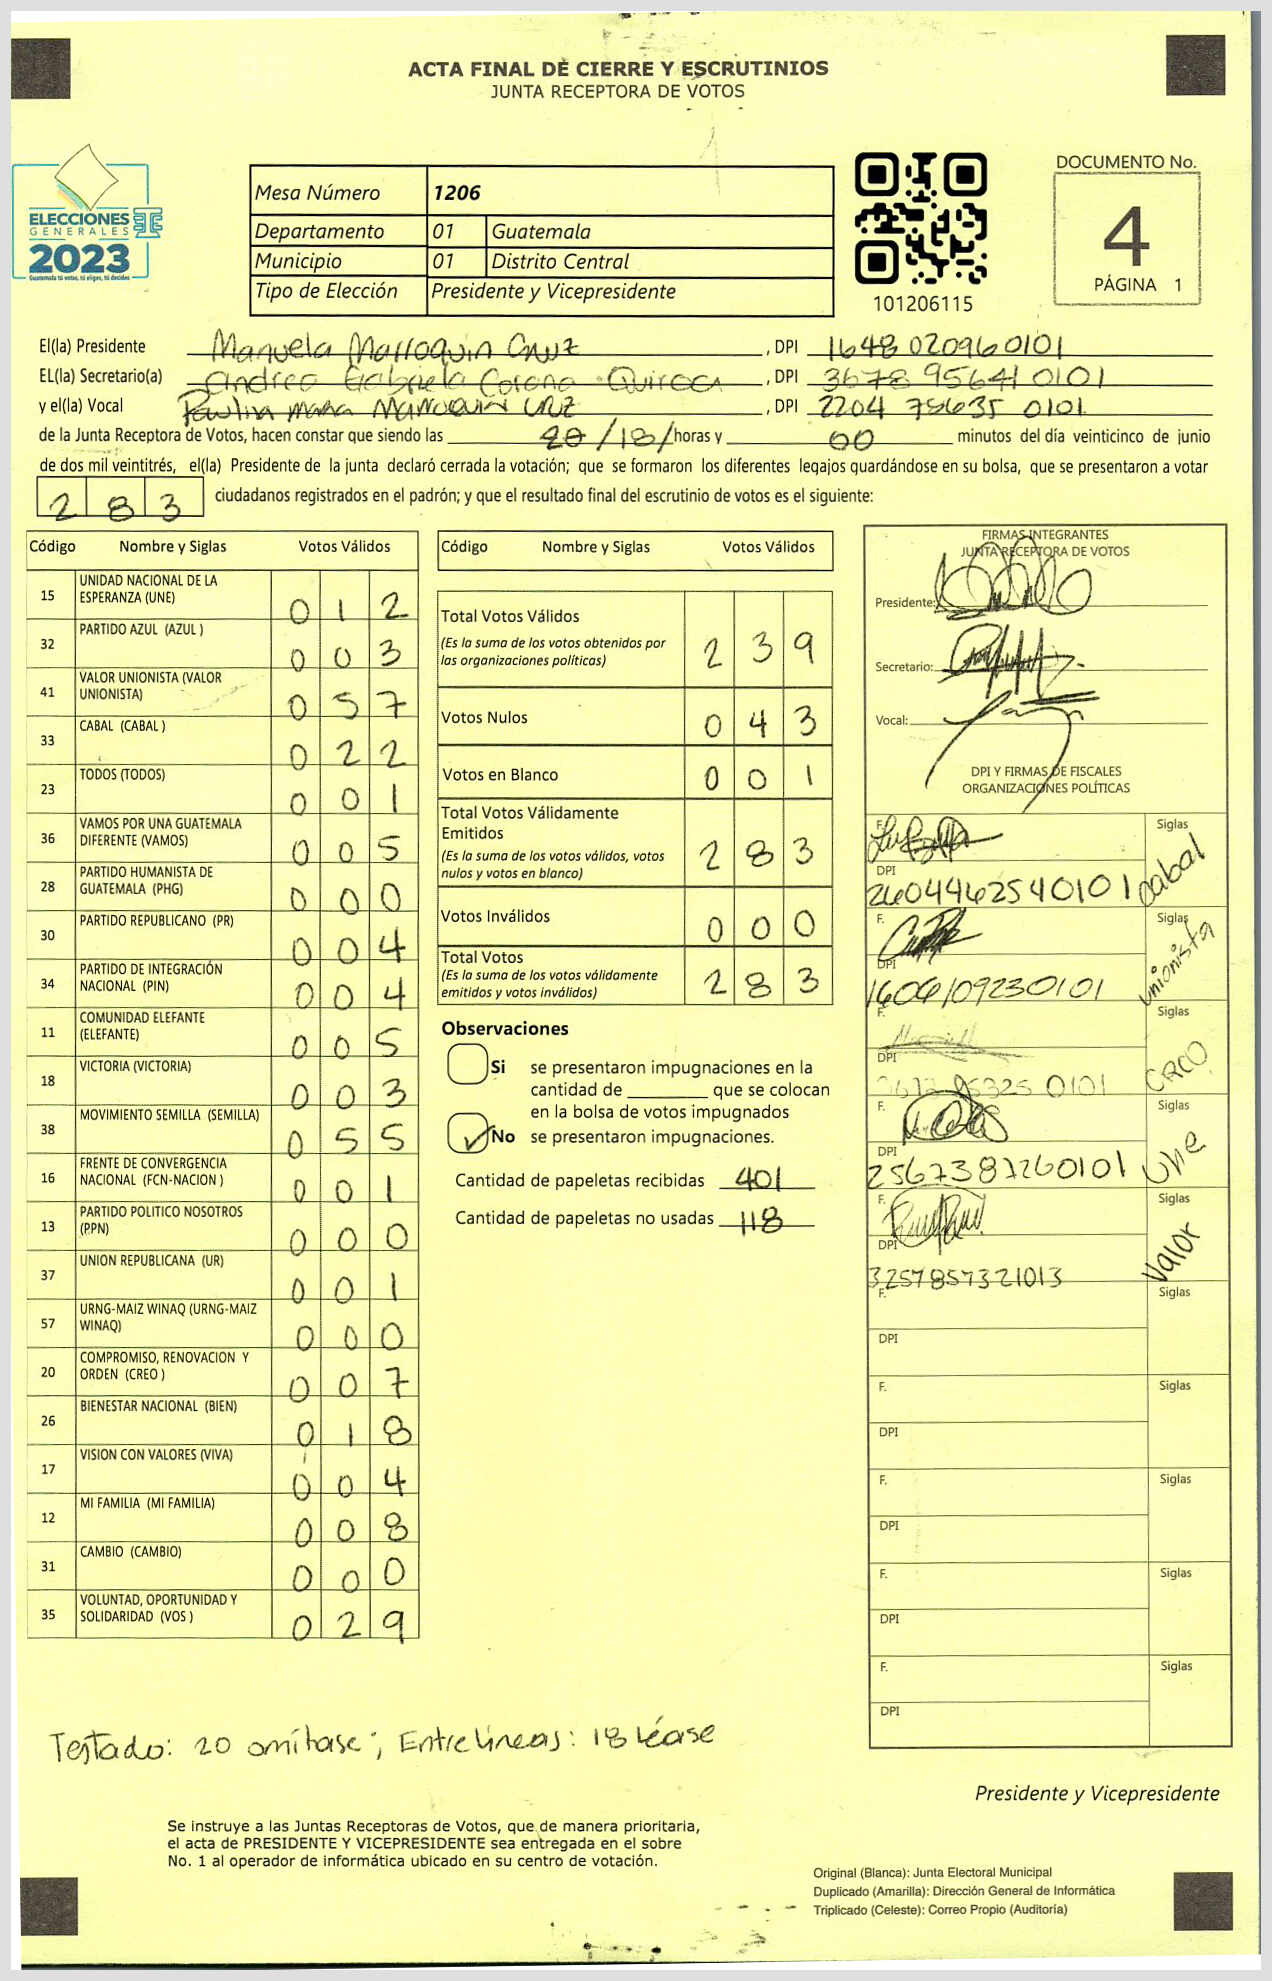 ACTA FINAL DE CIERRE Y ESCRUTINIOS
JUNTA RECEPTORA DE VOTOS
ELECCIONES
GENERALES
2023
Guatemala tú votas, tú eliges, tú decides
Mesa Número 1206
Departamento 01 Guatemala
Municipio 01 Distrito Central
Tipo de Elección Presidente y Vicepresidente
101206115
DOCUMENTO No.
4
PÁGINA 1
El(la) Presidente Manuela Marroquin Cruz , DPI 1648 02096 0101
EL(la) Secretario(a) Andrea Gabriela Corona Quiroa , DPI 3678 95641 0101
y el(la) Vocal Marroquin Cruz , DPI 2204 78635 0101
de la Junta Receptora de Votos, hacen constar que siendo las 20 /18/ horas y 00 minutos del día veinticinco de junio
de dos mil veintitrés, el(la) Presidente de la junta declaró cerrada la votación; que se formaron los diferentes legajos guardándose en su bolsa, que se presentaron a votar
283 ciudadanos registrados en el padrón; y que el resultado final del escrutinio de votos es el siguiente:
Código Nombre y Siglas Votos Válidos
15 UNIDAD NACIONAL DE LA ESPERANZA (UNE) 012
32 PARTIDO AZUL (AZUL ) 003
41 VALOR UNIONISTA (VALOR UNIONISTA) 057
33 CABAL (CABAL ) 022
23 TODOS (TODOS) 001
36 VAMOS POR UNA GUATEMALA DIFERENTE (VAMOS) 005
28 PARTIDO HUMANISTA DE GUATEMALA (PHG) 000
30 PARTIDO REPUBLICANO (PR) 004
34 PARTIDO DE INTEGRACIÓN NACIONAL (PIN) 004
11 COMUNIDAD ELEFANTE (ELEFANTE) 005
18 VICTORIA (VICTORIA) 003
38 MOVIMIENTO SEMILLA (SEMILLA) 055
16 FRENTE DE CONVERGENCIA NACIONAL (FCN-NACION ) 001
13 PARTIDO POLITICO NOSOTROS (PPN) 000
37 UNION REPUBLICANA (UR) 001
57 URNG-MAIZ WINAQ (URNG-MAIZ WINAQ) 000
20 COMPROMISO, RENOVACION Y ORDEN (CREO ) 007
26 BIENESTAR NACIONAL (BIEN) 018
17 VISION CON VALORES (VIVA) 004
12 MI FAMILIA (MI FAMILIA) 008
31 CAMBIO (CAMBIO) 000
35 VOLUNTAD, OPORTUNIDAD Y SOLIDARIDAD (VOS ) 029
Código Nombre y Siglas Votos Válidos
Total Votos Válidos 239
(Es la suma de los votos obtenidos por
las organizaciones políticas)
Votos Nulos 043
Votos en Blanco 001
Total Votos Válidamente
Emitidos 283
(Es la suma de los votos válidos, votos
nulos y votos en blanco)
Votos Inválidos 000
Total Votos 283
(Es la suma de los votos válidamente
emitidos y votos inválidos)
Observaciones
Si se presentaron impugnaciones en la
cantidad de ________ que se colocan
en la bolsa de votos impugnados
No se presentaron impugnaciones.
Cantidad de papeletas recibidas 401
Cantidad de papeletas no usadas 118
FIRMAS INTEGRANTES
JUNTA RECEPTORA DE VOTOS
Presidente:
Secretario:
Vocal:
DPI Y FIRMAS DE FISCALES
ORGANIZACIONES POLÍTICAS
F. Siglas Cabal
DPI
2604462540101
F. Siglas Unionista
DPI
1606109230101
F. Siglas CREO
DPI
0101
F. Siglas Une
DPI
2567387260101
F. Siglas Valor
DPI
3257857321013
F. Siglas
DPI
F. Siglas
DPI
F. Siglas
DPI
F. Siglas
DPI
F. Siglas
DPI
Testado: 20 omitase; Entrelineas: 18 Léase
Presidente y Vicepresidente
Se instruye a las Juntas Receptoras de Votos, que de manera prioritaria,
el acta de PRESIDENTE Y VICEPRESIDENTE sea entregada en el sobre
No. 1 al operador de informática ubicado en su centro de votación.
Original (Blanca): Junta Electoral Municipal
Duplicado (Amarilla): Dirección General de Informática
Triplicado (Celeste): Correo Propio (Auditoría)